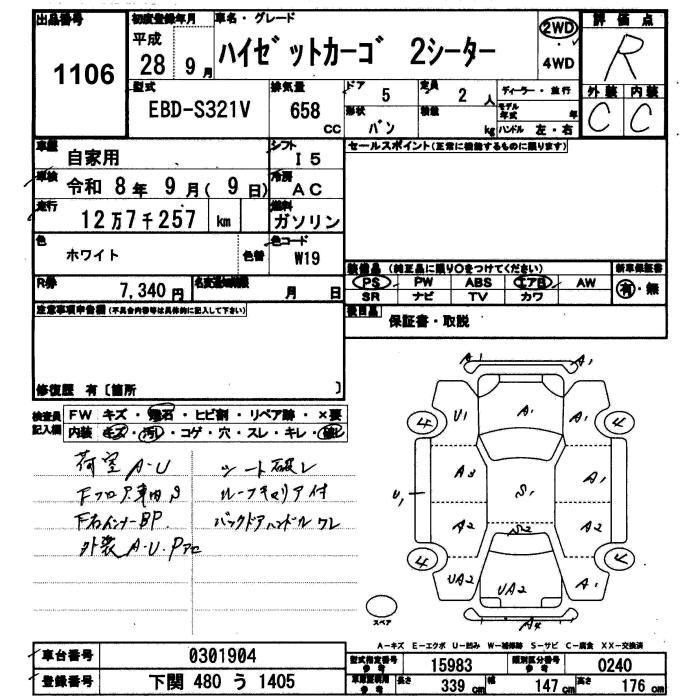 出品番号 1106
初度登録年月 平成 28年 9月
車名・グレード ハイゼットカーゴ 2シーター
2WD
4WD
評価点 R
外装 C 内装 C
型式 EBD-S321V
排気量 658 CC
ドア 5
定員 2 人
形状 バン
積載 kg
ディーラー・並行
モデル年式 年
ハンドル 左・右
車歴 自家用
シフト I5
車検 令和 8年 9月( 9日)
冷房 AC
走行 12万7千257 km
燃料 ガソリン
色 ホワイト
色替
色コード W19
R券 7,340円
名変期限 月 日
セールスポイント(正常に機能するものに限ります)
装備品 (純正品に限り〇をつけてください)
PS PW ABS エアB AW
SR ナビ TV カワ
新車保証書 有・無
後日品 保証書・取説
注意事項申告欄(不具合内容等は具体的に記入して下さい)
修復歴 有〔箇所 〕
検査員記入欄
FW キズ・飛石・ヒビ割・リペア跡・×要
内装 キズ・汚レ・コゲ・穴・スレ・キレ・破レ
荷室 A-U
Fフロア車内S
F右インナーBP
外装 A-U.P
シート破レ
ルーフキャリア付
バックドアハンドルワレ
A1 A1
4 U1 A1 A1 4
A3 A1
U1 S1
A2 S2 A2
4 UA2 UA2 A1 4
スペア A4
A-キズ E-エクボ U-凹み W-補修跡 S-サビ C-腐食 XX-交換済
車台番号 0301904
登録番号 下関 480 う 1405
型式指定番号 参考 15983
類別区分番号 参考 0240
車庫証明用 参考 長さ 339 cm 幅 147 cm 高さ 176 cm